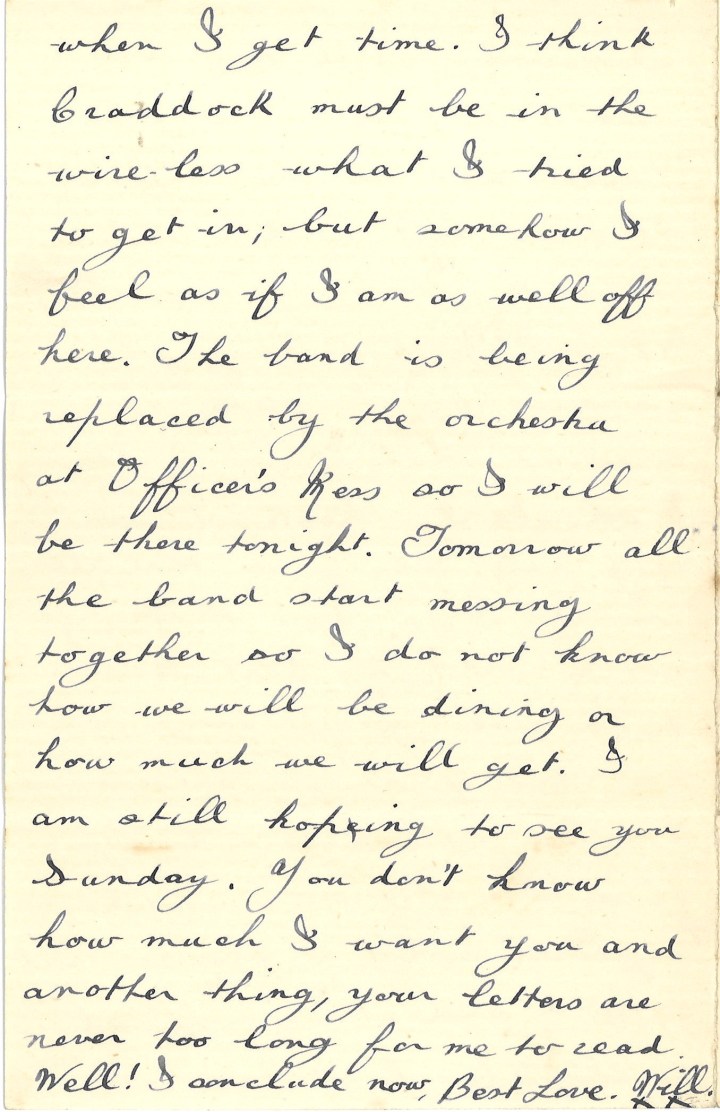 when I get time. I think
Craddock must be in the
wire-less what I tried
to get in; but somehow I
feel as if I am as well off
here. The band is being
replaced by the orchestra
at Officer's Mess so I will
be there tonight. Tomorrow all
the band start messing
together so I do not know
how we will be dining or
how much we will get. I
am still hopeing to see you
Sunday. You don't know
how much I want you and
another thing, your letters are
never too long for me to read.
Well! I conclude now, Best Love. Will.
x x